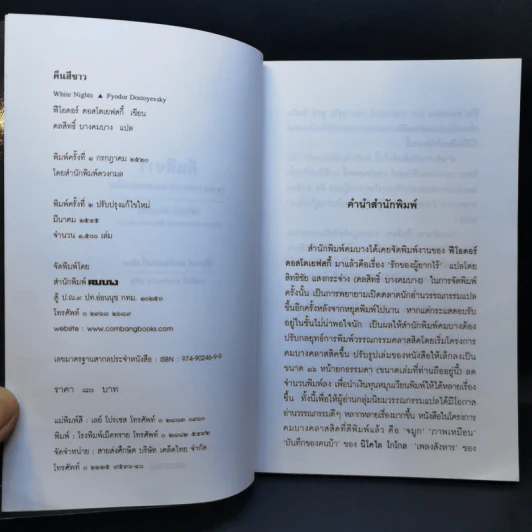 คืนสีขาว
White Nights ▲ Fyodor Dostoyevsky
ฟีโอดอร์ ดอสโตเยฟสกี้ เขียน
ดลสิทธิ์ บางคมบาง แปล
พิมพ์ครั้งที่ ๑ กรกฎาคม ๒๕๒๐
โดยสำนักพิมพ์ดวงกมล
พิมพ์ครั้งที่ ๒ ปรับปรุงแก้ไขใหม่
มีนาคม ๒๕๔๕
จำนวน ๑,๕๐๐ เล่ม
จัดพิมพ์โดย
สำนักพิมพ์ คมบาง
ตู้ ปณ.๙ ปท.อ่อนนุช กทม. ๑๐๒๕๐
โทรศัพท์
website : www.combangbooks.com
เลขมาตรฐานสากลประจำหนังสือ : ISBN 974-90246-9-9
ราคา ๘๐ บาท
แม่พิมพ์สี : เลย์ โปรเซส โทรศัพท์
พิมพ์ : โรงพิมพ์เม็ดทราย โทรศัพท์
จัดจำหน่าย : สายส่งศึกษิต บริษัท เคล็ดไทย จำกัด
โทรศัพท์
คำนำสำนักพิมพ์
สำนักพิมพ์คมบางได้เคยจัดพิมพ์งานของ ฟีโอดอร์
ดอสโตเยฟสกี้ มาแล้วคือเรื่อง 'รักของผู้ยากไร้' แปลโดย
สิทธิชัย แสงกระจ่าง (ดลสิทธิ์ บางคมบาง) ในการจัดพิมพ์
ครั้งนั้น เป็นการพยายามเปิดตลาดนักอ่านวรรณกรรมแปล
ขึ้นอีกครั้งหลังจากหยุดพิมพ์ไปนาน หากแต่กระแสตอบรับ
อยู่ในขั้นไม่น่าพอใจนัก เป็นผลให้สำนักพิมพ์คมบางต้อง
ปรับกลยุทธ์การพิมพ์วรรณกรรมคลาสสิคโดยเริ่มโครงการ
คมบางคลาสสิคขึ้น ปรับรูปเล่มของหนังสือให้เล็กลงเป็น
ขนาด ๑๖ หน้ายกธรรมดา (ขนาดเล่มที่ท่านถืออยู่นี้) ลด
จำนวนพิมพ์ลง เพื่อนำเงินทุนหมุนเวียนพิมพ์ให้ได้หลายเรื่อง
ขึ้น ทั้งนี้เพื่อให้ผู้อ่านกลุ่มนิยมวรรณกรรมแปลได้มีโอกาส
อ่านวรรณกรรมดีๆ หลากหลายเรื่องมากขึ้น หนังสือในโครงการ
คมบางคลาสสิคที่ตีพิมพ์แล้ว คือ 'จมูก' 'ภาพเหมือน'
'บันทึกของคนบ้า' ของ นิโคไล โกโกล 'เพลงสังหาร' ของ